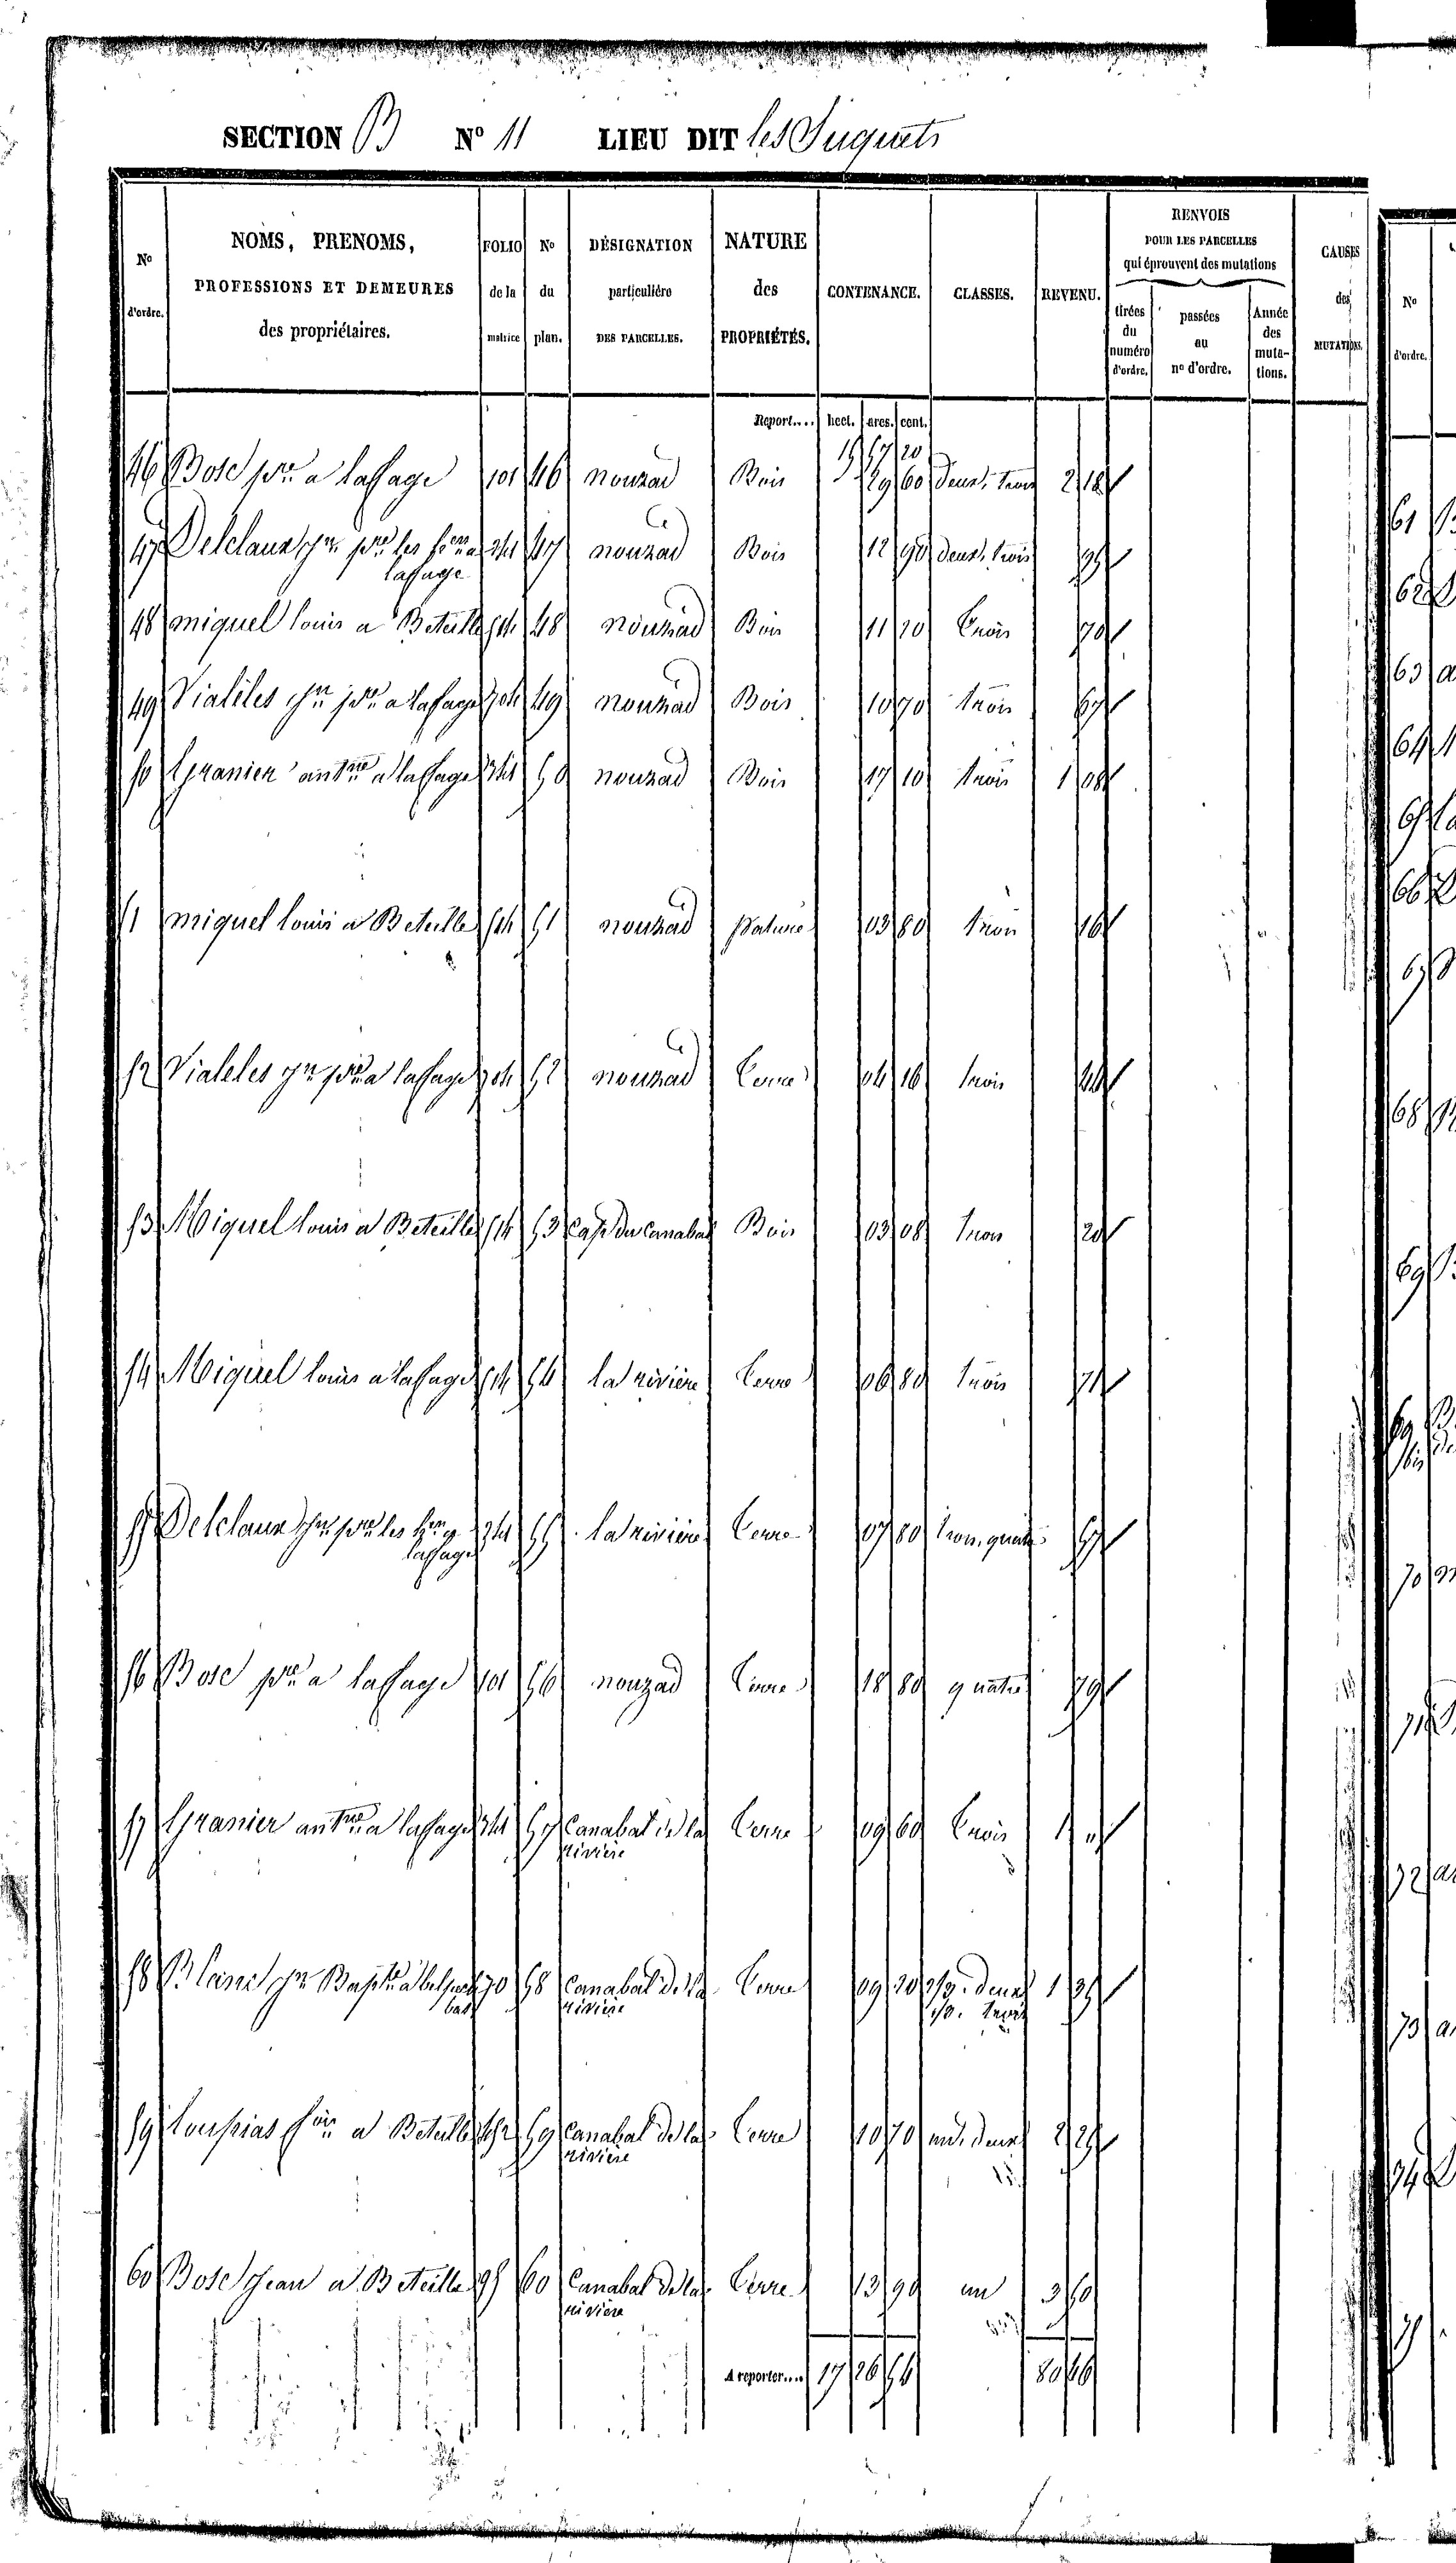 SECTION B N° 11 LIEU DIT les Suquets
N° d'ordre. | NOMS, PRENOMS, PROFESSIONS ET DEMEURES des propriétaires. | FOLIO de la matrice | N° du plan. | DÉSIGNATION particulière DES PARCELLES. | NATURE des PROPRIÉTÉS. | CONTENANCE. | CLASSES. | REVENU. | RENVOIS POUR LES PARCELLES qui éprouvent des mutations | tirées du numéro d'ordre. | passées au n° d'ordre. | Année des mutations. | CAUSES des MUTATIONS.
Report.... hect. ares. cent.
46 Bosc pre a laffage 101 46 nouzad Bois 29 60 deux, trois 2 18
47 Delclaux jn pre les hers a 47 nouzad Bois 12 90 deux, trois
laffage
48 miquel louis a Beteille 514 48 nouzad Bois 11 70 trois 70
49 Vialeles jn pre a lafage 49 nouzad Bois 10 70 trois 67
50 Granier antne a laffage 50 nouzad Bois 17 10 trois 1 08
51 miquel louis a Beteille 514 51 nouzad pature 03 80 trois 16
52 Vialeles jn pre a laffage 52 nouzad terre 04 16 trois 44
53 Miquel louis a Beteille 514 53 Cap du Canabal Bois 03 08 trois 20
54 Miquel louis a laffage 514 54 la rivière terre 06 80 trois 71
55 Delclaux jn pre les hers a 55 la rivière terre 07 80 trois, quatre 57
laffage
56 Bosc pre a laffage 101 56 nouzad terre 18 80 quatre 79
57 Granier antne a laffage 57 Canabal de la terre 09 60 trois 1
rivière
58 Blanc jn Bapte a 70 58 Canabal de la terre 09 20 2/3. deux 1
bas rivière 1/3. trois
59 Loupias a Beteille 59 Canabal de la terre 10 70 un, deux 2 25
rivière
60 Bosc Jean a Beteille 95 60 Canabal de la terre 13 90 un 3
rivière
A reporter.... 17 26 54 80 46
N° d'ordre.
61
62
63
64
65
66
67
68
69
69 bis
70
71
72
73
74
75